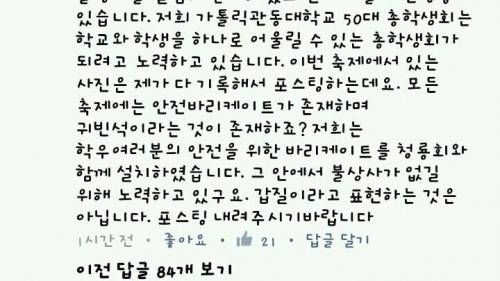 있습니다. 저희 가톨릭관동대학교 50대 총학생회는
학교와 학생을 하나로 어울릴 수 있는 총학생회가
되려고 노력하고 있습니다. 이번 축제에서 있는
사진은 제가 다 기록해서 포스팅하는데요. 모든
축제에는 안전바리케이트가 존재하며
귀빈석이라는 것이 존재하죠? 저희는
학우여러분의 안전을 위한 바리케이트를 청룡회와
함께 설치하였습니다. 그 안에서 불상사가 없길
위해 노력하고 있구요. 갑질이라고 표현하는 것은
아닙니다. 포스팅 내려주시기바랍니다
1시간 전 · 좋아요 · 21 · 답글 달기
이전 답글 84개 보기